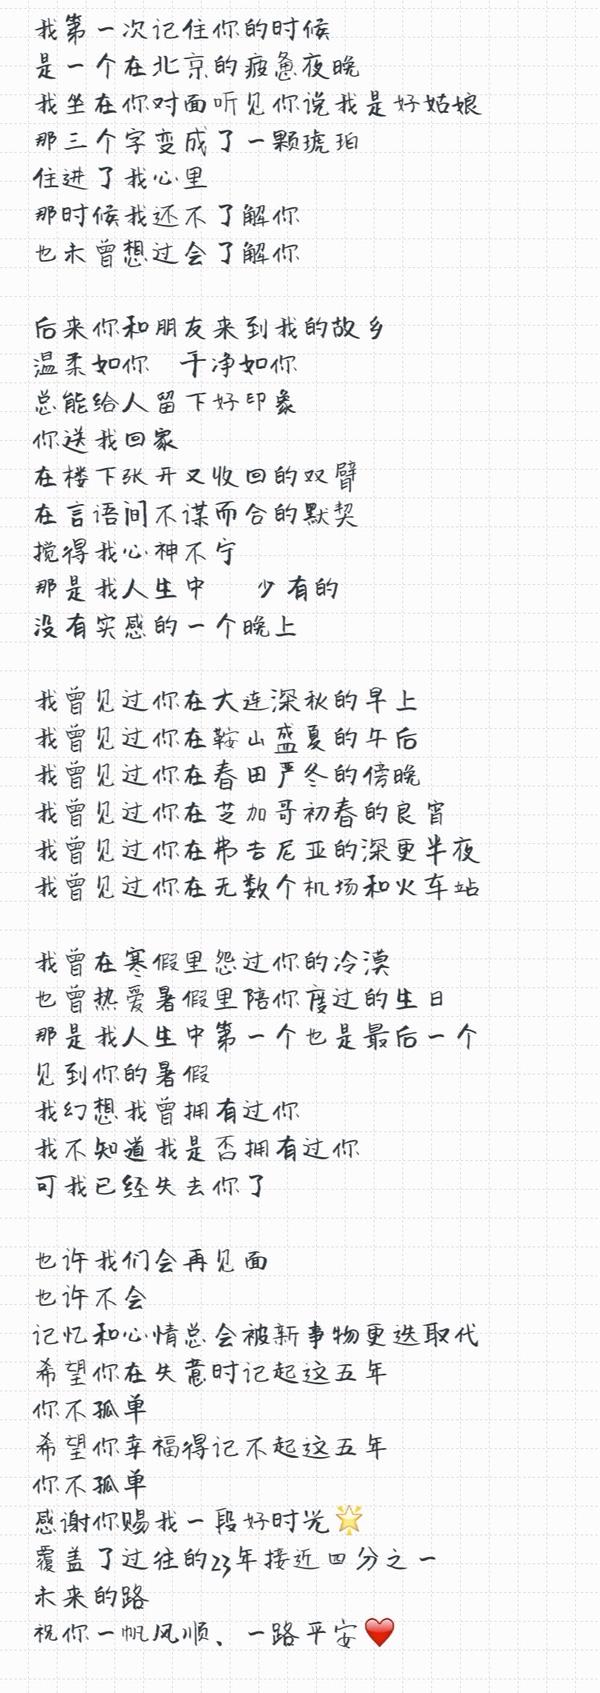 我第一次记住你的时候
是一个在北京的疲惫夜晚
我坐在你对面听见你说我是好姑娘
那三个字变成了一颗琥珀
住进了我心里
那时候我还不了解你
也未曾想过会了解你
后来你和朋友来到我的故乡
温柔如你 干净如你
总能给人留下好印象
你送我回家
在楼下张开又收回的双臂
在言语间不谋而合的默契
搅得我心神不宁
那是我人生中 少有的
没有实感的一个晚上
我曾见过你在大连深秋的早上
我曾见过你在鞍山盛夏的午后
我曾见过你在春田严冬的傍晚
我曾见过你在芝加哥初春的良宵
我曾见过你在弗吉尼亚的深更半夜
我曾见过你在无数个机场和火车站
我曾在寒假里怨过你的冷漠
也曾热爱暑假里陪你度过的生日
那是我人生中第一个也是最后一个
见到你的暑假
我幻想我曾拥有过你
我不知道我是否拥有过你
可我已经失去你了
也许我们会再见面
也许不会
记忆和心情总会被新事物更迭取代
希望你在失意时记起这五年
你不孤单
希望你幸福得记不起这五年
你不孤单
感谢你赐我一段好时光🌟
覆盖了过往的23年接近四分之一
未来的路
祝你一帆风顺、一路平安❤️